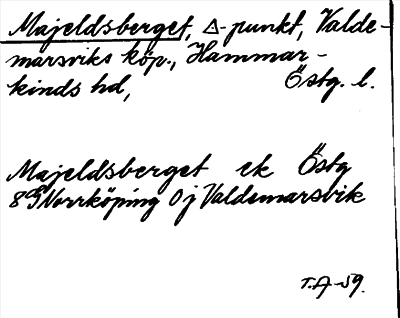 Majeldsberget, △-punkt, Valde-
marsviks köp., Hammar-
kinds hd, Östg. l.
Majeldsberget ek Östg
8G Norrköping 0j Valdemarsvik
T.A-59.